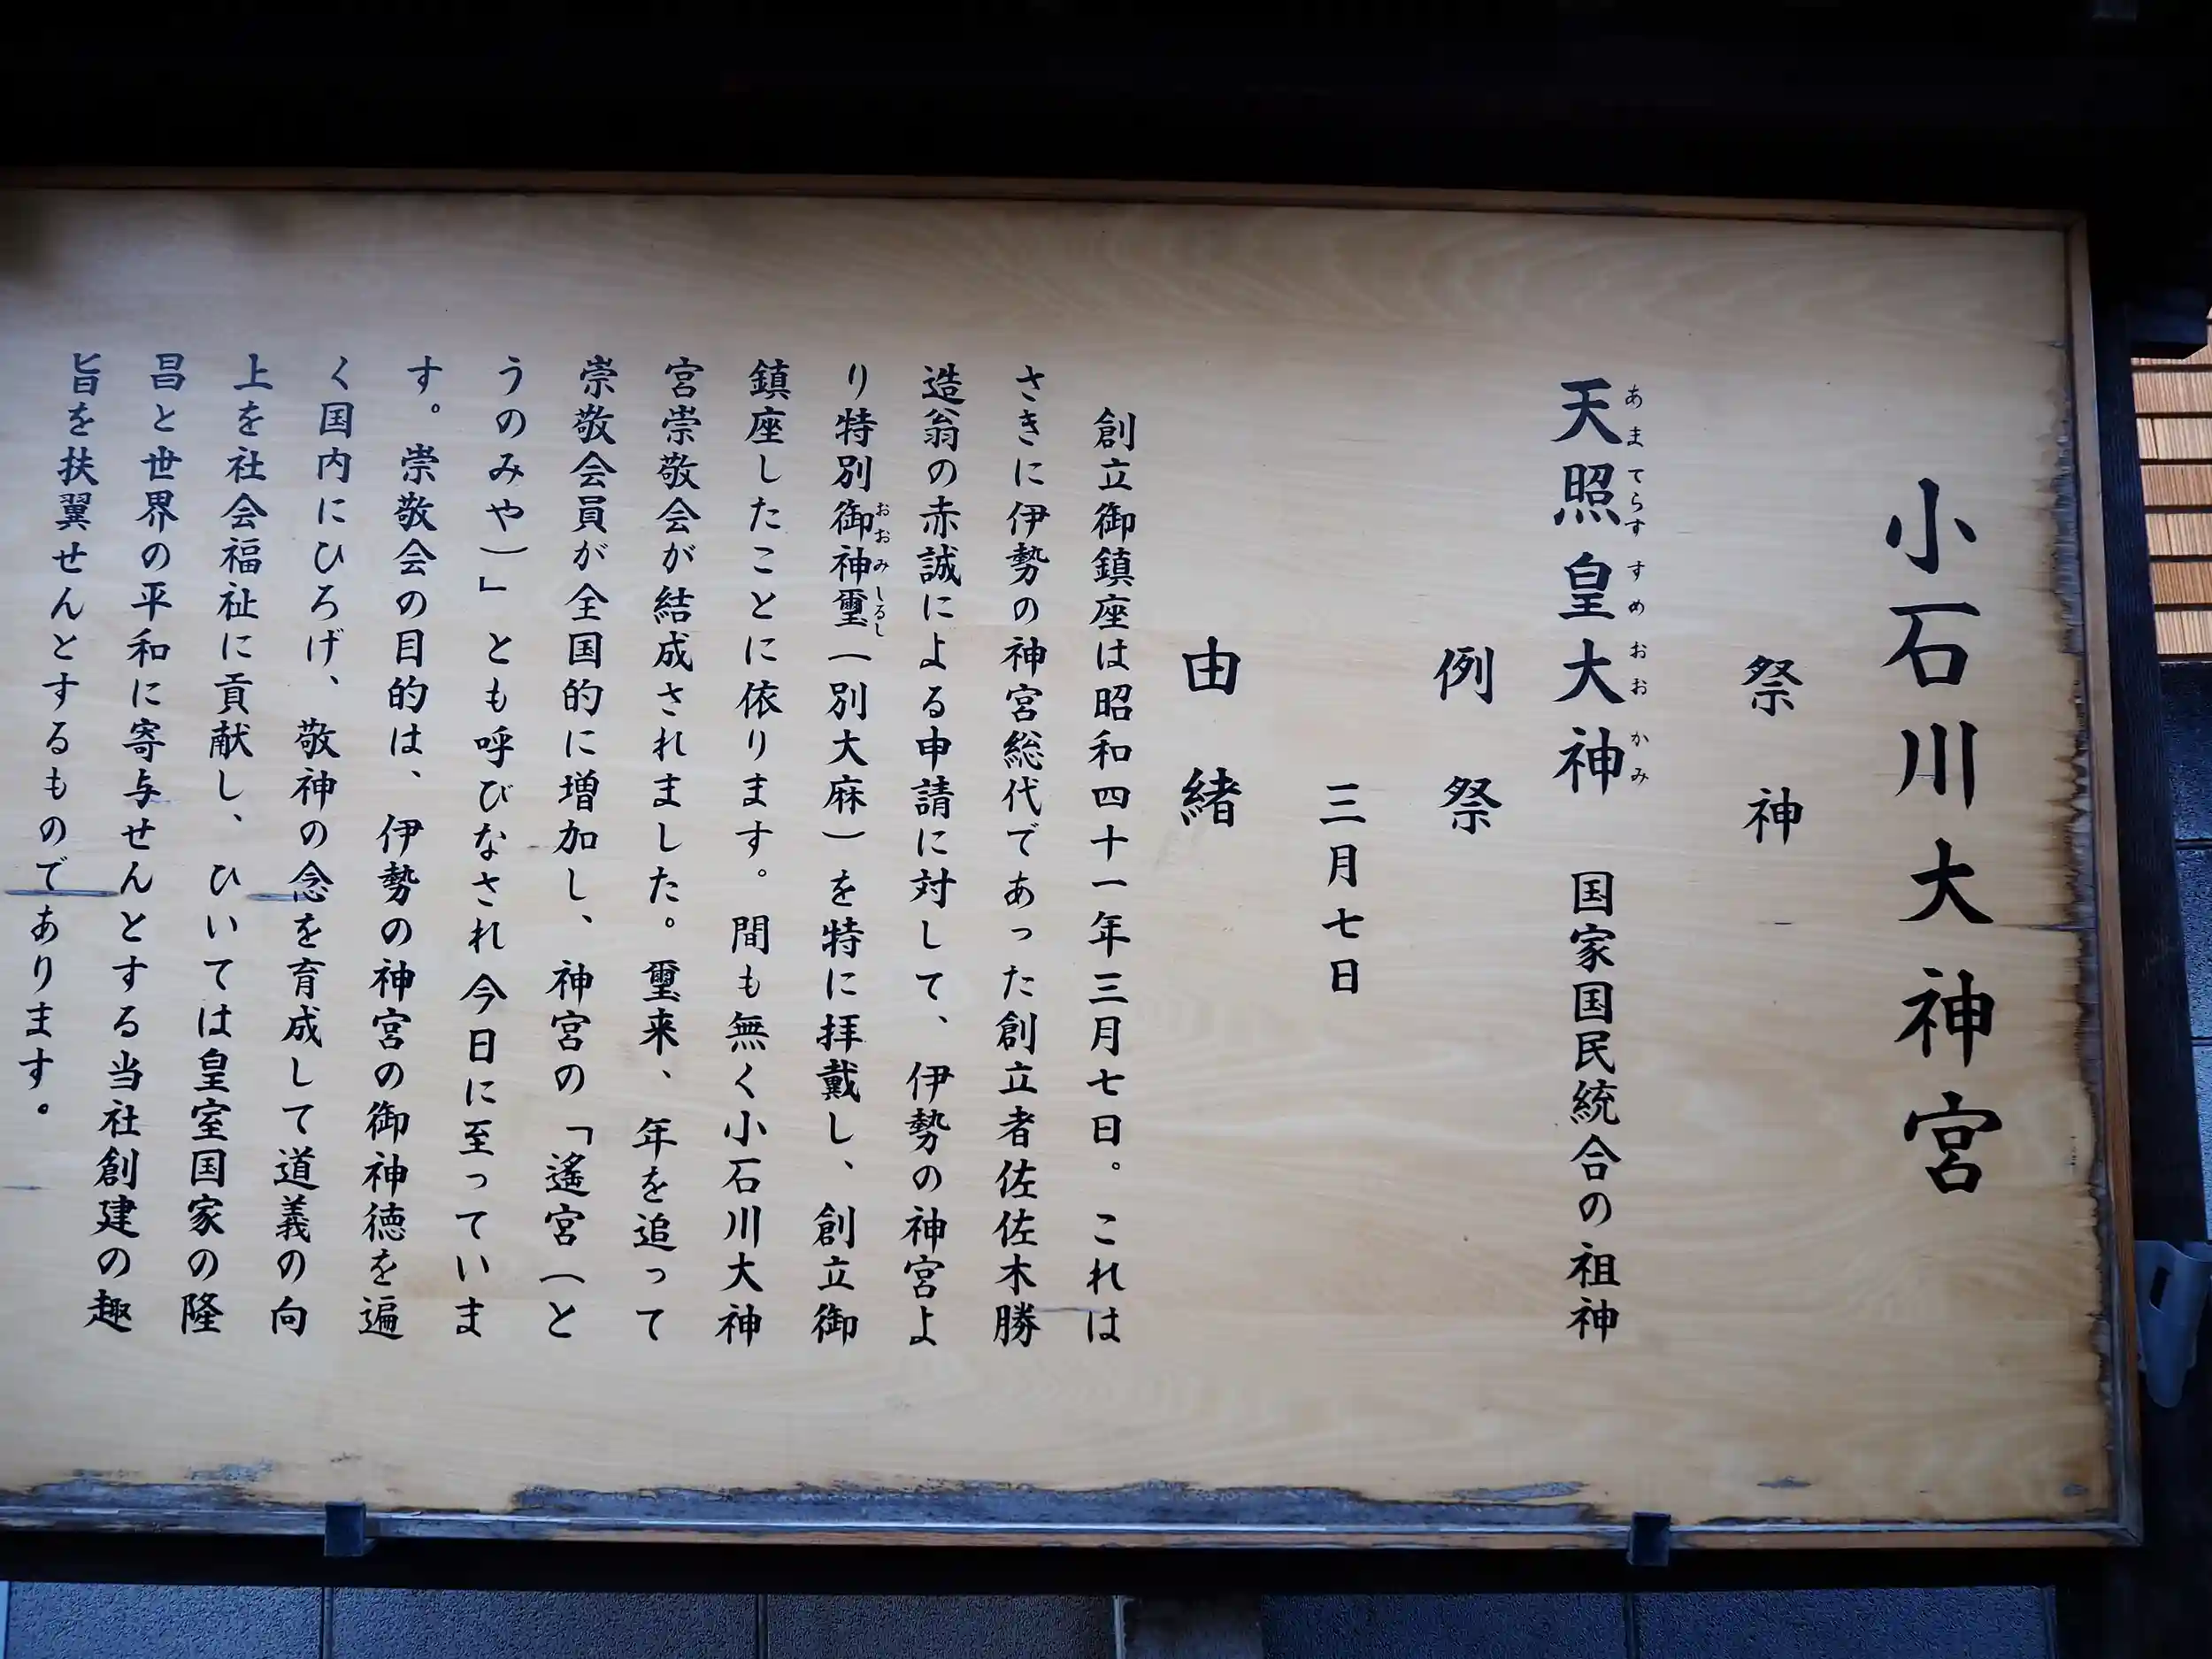 小石川大神宮
祭神
天照皇大神 国家国民統合の祖神
あまてらすすめおおかみ
例祭
三月七日
由緒
創立御鎮座は昭和四十一年三月七日。これは
さきに伊勢の神宮総代であった創立者佐佐木勝
造翁の赤誠による申請に対して、伊勢の神宮よ
り特別御神璽（別大麻）を特に拝戴し、創立御
おおみしるし
鎮座したことに依ります。間も無く小石川大神
宮崇敬会が結成されました。璽来、年を追って
崇敬会員が全国的に増加し、神宮の「遙宮（と
うのみや）」とも呼びなされ今日に至っていま
す。崇敬会の目的は、伊勢の神宮の御神徳を遍
く国内にひろげ、敬神の念を育成して道義の向
上を社会福祉に貢献し、ひいては皇室国家の隆
昌と世界の平和に寄与せんとする当社創建の趣
旨を扶翼せんとするものであります。